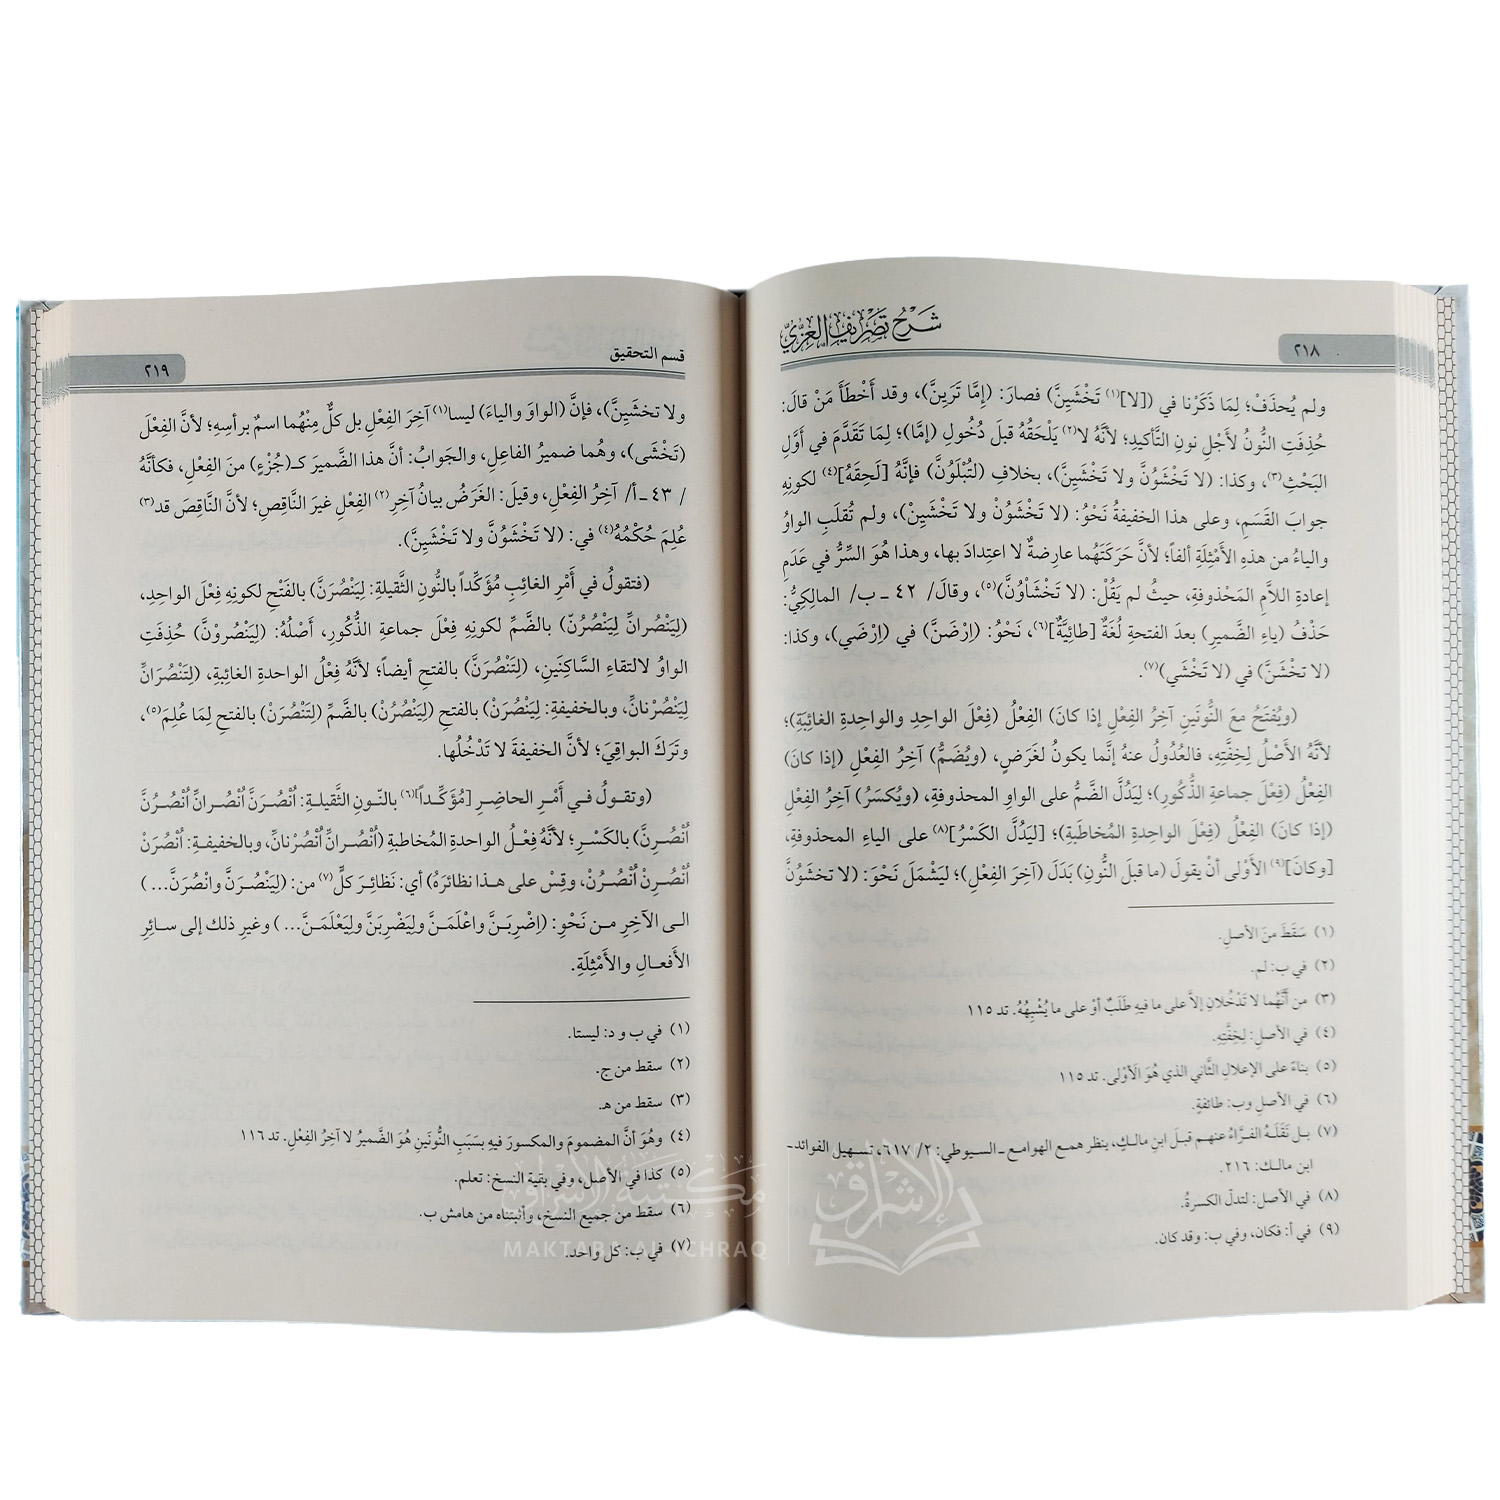 ٢١٨
شرح تصريف العزي
ولم يُحذَفْ؛ لِمَا ذَكَرْنا في ([لا](١) تَخْشَيِنَّ) فصارَ: (إمَّا تَرَيِنَّ)، وقد أَخْطَأَ مَنْ قالَ:
حُذِفَتِ النُّونُ لأَجْلِ نونِ التَّأكيدِ؛ لأنَّهُ لا(٢) يَلْحَقُهُ قبلَ دُخُولِ (إمَّا)؛ لِمَا تَقَدَّمَ في أوَّلِ
البَحْثِ(٣)، وكذا: (لا تَخْشَوُنَّ ولا تَخْشَيِنَّ)، بخلافِ (لتُبْلَوُنَّ) فإنَّهُ [لَحِقَهُ](٤) لكونِهِ
جوابَ القَسَمِ، وعلى هذا الخفيفةُ نَحْوُ: (لا تَخْشَوُنْ ولا تَخْشَيِنْ)، ولم تُقلَبِ الواوُ
والياءُ من هذهِ الأَمْثِلَةِ ألفاً؛ لأنَّ حَرَكَتَهُما عارِضةٌ لا اعتِدادَ بها، وهذا هُوَ السِّرُّ في عَدَمِ
إعادةِ اللاَّمِ المَحْذوفةِ، حيثُ لم يَقُلْ: (لا تَخْشَاوُنَّ)(٥)، وقالَ/ ٤٢ ـ ب/ المالِكِيُّ:
حَذْفُ (ياءِ الضَّميرِ) بعدَ الفتحةِ لُغَةٌ [طائِيَّةٌ](٦)، نَحْوُ: (اِرْضَنَّ) في (اِرْضَي)، وكذا:
(لا تخْشَنَّ) في (لا تَخْشَي)(٧).
(ويُفتَحُ معَ النُّونَينِ آخِرُ الفِعْلِ إذا كانَ) الفِعْلُ (فِعْلَ الواحِدِ والواحِدةِ الغائِبَةِ)؛
لأنَّهُ الأَصْلُ لِخِفَّتِهِ، فالعُدُولُ عنهُ إنَّما يكونُ لغَرَضٍ، (ويُضَمُّ) آخِرُ الفِعْلِ (إذا كانَ)
الفِعْلُ (فِعْلَ جماعةِ الذُّكُورِ)؛ لِيَدُلَّ الضَّمُّ على الواوِ المحذوفةِ، (ويُكسَرُ) آخِرُ الفِعْلِ
(إذا كانَ) الفِعْلُ (فِعْلَ الواحِدةِ المُخاطَبةِ)؛ [ليَدُلَّ الكَسْرُ](٨) على الياءِ المحذوفةِ،
[وكانَ](٩) الأَوْلى أنْ يقولَ (ما قبلَ النُّونِ) بَدَلَ (آخِرَ الفِعْلِ)؛ ليَشْمَلَ نَحْوَ: (لا تخشَوُنَّ
(١) سَقَطَ منَ الأصلِ.
(٢) في ب: لم.
(٣) من أنَّهُما لا تَدْخُلانِ إلاَّ على ما فيهِ طَلَبٌ أوْ على ما يُشْبِهُهُ. تد ١١٥
(٤) في الأصلِ: لِخِفَّتِهِ.
(٥) بناءً على الإعلالِ الثَّاني الذي هُوَ الأَوْلى. تد ١١٥
(٦) في الأصلِ وب: طائفةٍ.
(٧) بـل نَقَلَـهُ الفـرَّاءُ عنهـم قبـلَ ابنِ مالـكٍ، ينظر همـع الهوامـع ـ السـيوطي: ٢/ ٦١٧، تسـهيل الفوائد ـ
ابن مالـك: ٢١٦.
(٨) في الأصل: لتدلّ الكسرةُ.
(٩) في أ: فكان، وفي ب: وقد كان.
قسم التحقيق
٢١٩
ولا تخشَيِنَّ)، فإنَّ (الواوَ والياءَ) ليسا(١) آخِرَ الفِعْلِ بل كلٌّ مِنْهُما اسمٌ برأسِهِ؛ لأنَّ الفِعْلَ
(تَخْشَى)، وهُما ضميرُ الفاعِلِ، والجَوابُ: أنَّ هذا الضَّميرَ كـ(جُزْءٍ) منَ الفِعْلِ، فكأنَّهُ
/ ٤٣ ـ أ/ آخِرُ الفِعْلِ، وقيلَ: الغَرَضُ بيانُ آخِرِ(٢) الفِعْلِ غيرَ النَّاقِصِ؛ لأنَّ النَّاقِصَ قد(٣)
عُلِمَ حُكْمُهُ(٤) في: (لا تَخْشَوُنَّ ولا تَخْشَيِنَّ).
(فتقولُ في أَمْرِ الغائِبِ مُؤَكَّداً بالنُّونِ الثَّقيلةِ: لِيَنْصُرَنَّ) بالفَتْحِ لكونِهِ فِعْلَ الواحِدِ،
(لِيَنْصُرانِّ لِيَنْصُرُنَّ) بالضَّمِّ لكونِهِ فِعْلَ جماعةِ الذُّكُورِ، أَصْلُهُ: (لِيَنْصُرُونَّ) حُذِفَتِ
الواوُ لالتقاءِ السَّاكِنَينِ، (لِتَنْصُرَنَّ) بالفتحِ أيضاً؛ لأنَّهُ فِعْلُ الواحدةِ الغائِبةِ، (لِتَنْصُرَانِّ
لِيَنْصُرْنانِّ، وبالخفيفةِ: لِيَنْصُرَنْ) بالفتحِ (لِيَنْصُرُنْ) بالضَّمِّ (لِتَنْصُرَنْ) بالفتحِ لِمَا عُلِمَ(٥)،
وتَرَكَ البواقِيَ؛ لأنَّ الخفيفةَ لا تَدْخُلُها.
(وتقـولُ فـي أَمْـرِ الحاضِرِ [مُؤَكَّـداً](٦) بالنّـونِ الثَّقيلـةِ: اُنْصُـرَنَّ اُنْصُـرانِّ اُنْصُـرُنَّ
اُنْصُـرِنَّ) بالكَسْـرِ؛ لأنَّـهُ فِعْـلُ الواحـدةِ المُخاطبةِ (اُنْصُـرانِّ اُنْصُرْنانِّ، وبالخفيفـةِ: اُنْصُرَنْ
اُنْصُـرُنْ اُنْصُـرِنْ، وقِسْ على هـذا نظائرَهُ) أي: نَظائِـرَ كلٍّ(٧) من: (لِيَنْصُـرَنَّ وانْصُـرَنَّ... )
الـى الآخِرِ مـن نَحْوِ: (اِضْرِبَـنَّ واعْلَمَـنَّ وليَضْرِبَنَّ ولِيَعْلَمَـنَّ... ) وغيرِ ذلك إلى سـائِرِ
الأَفعـالِ والأَمْثِلَةِ.
(١) في ب و د: ليستا.
(٢) سقط من ج.
(٣) سقط من هـ.
(٤) وهُوَ أنَّ المضمومَ والمكسورَ فيهِ بسَبَبِ النُّونَينِ هُوَ الضَّميرُ لا آخِرُ الفِعْلِ. تد ١١٦
(٥) كذا في الأصل، وفي بقية النسخ: تعلم.
(٦) سقط من جميع النسخ، وأثبتناه من هامش ب.
(٧) في ب: كل واحد.
مكتبة الإشراق
MAKTABA AL-ICHRAQ
الإشراق